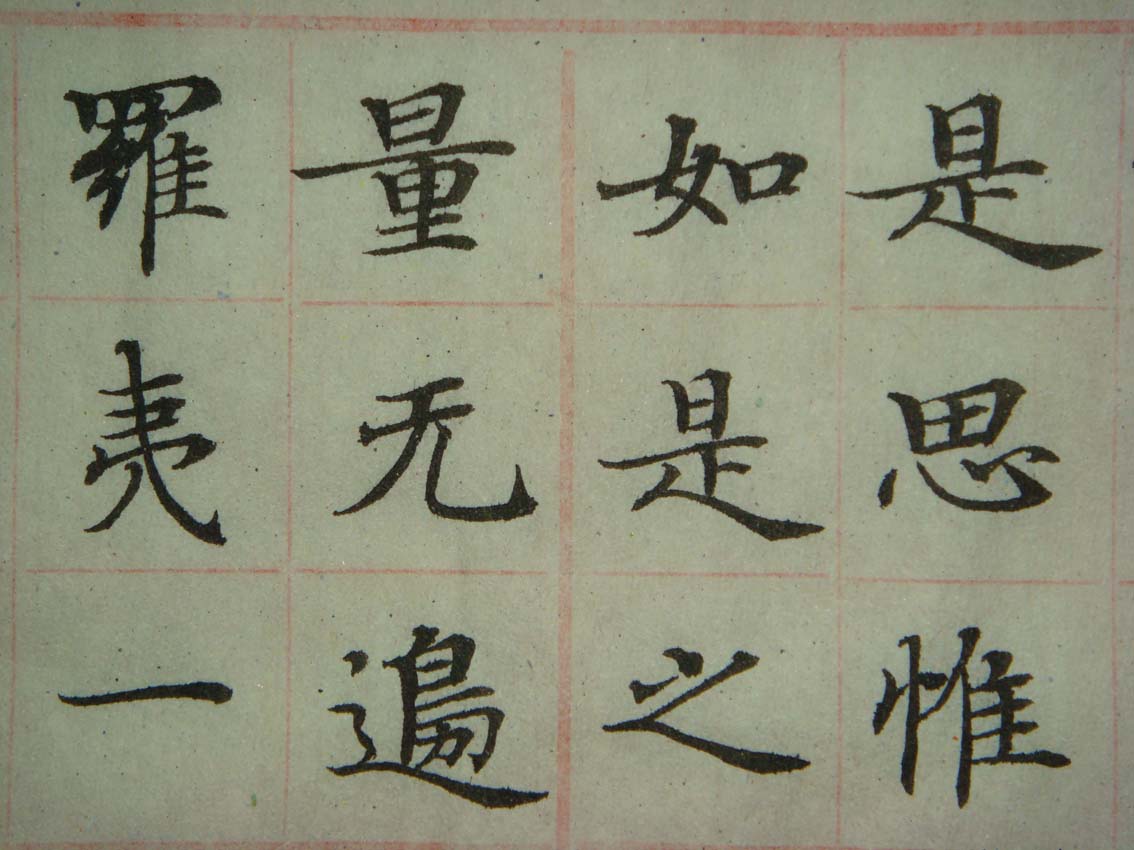 是思惟
如是之
量无邊
羅夷一